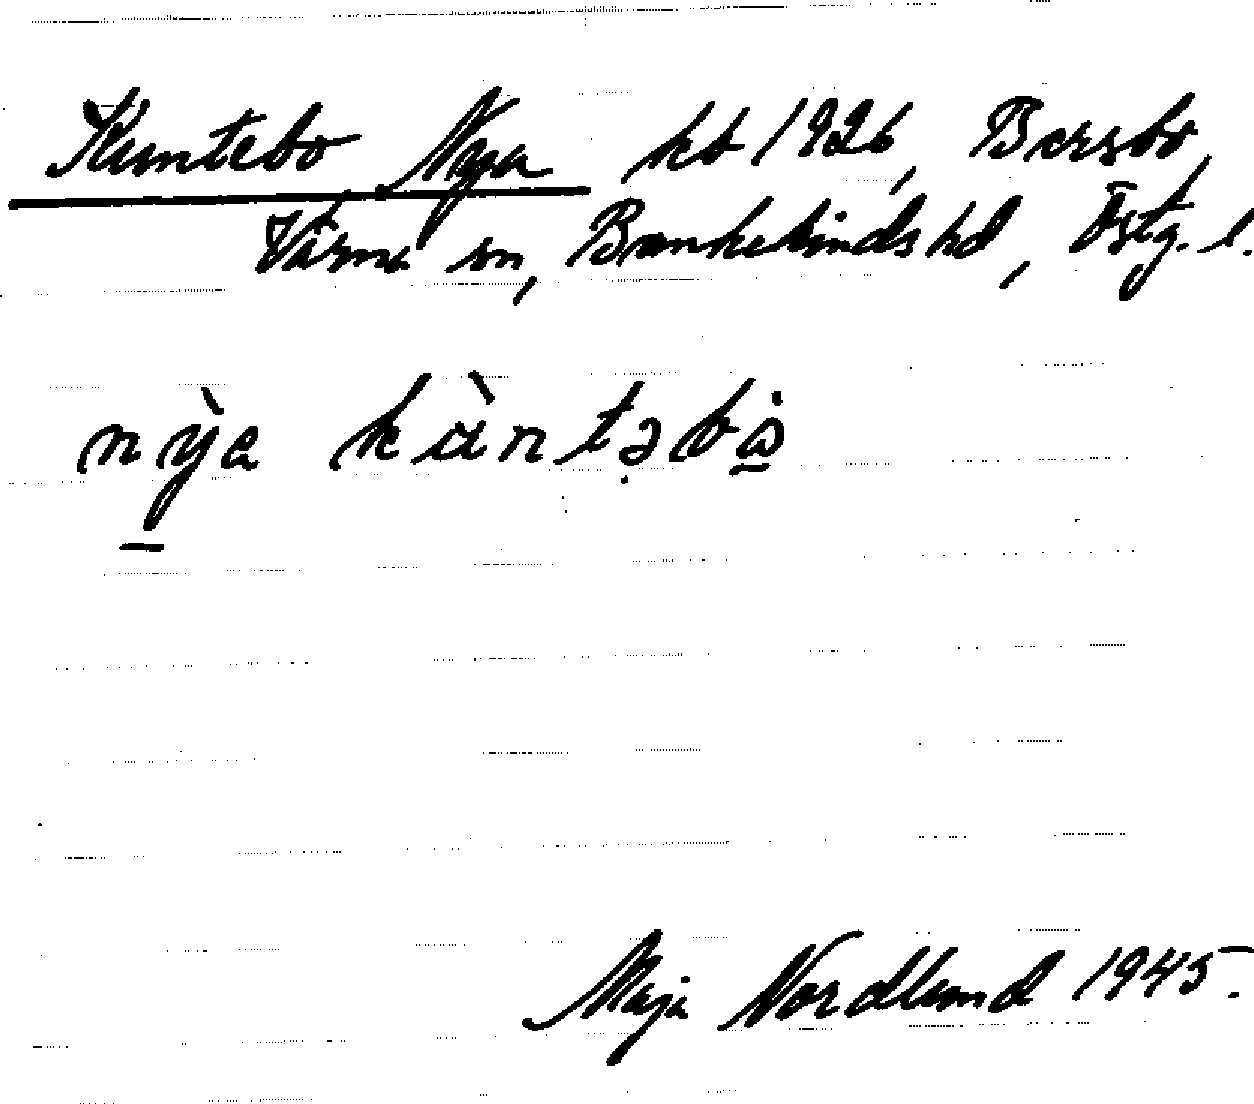 Kuntebo Nya kb 1926, Bersbo,
Värna sn, Bankekinds hd, Östg. l.
nỳa kùntə̣bo̱
Maja Nordlund 1945.